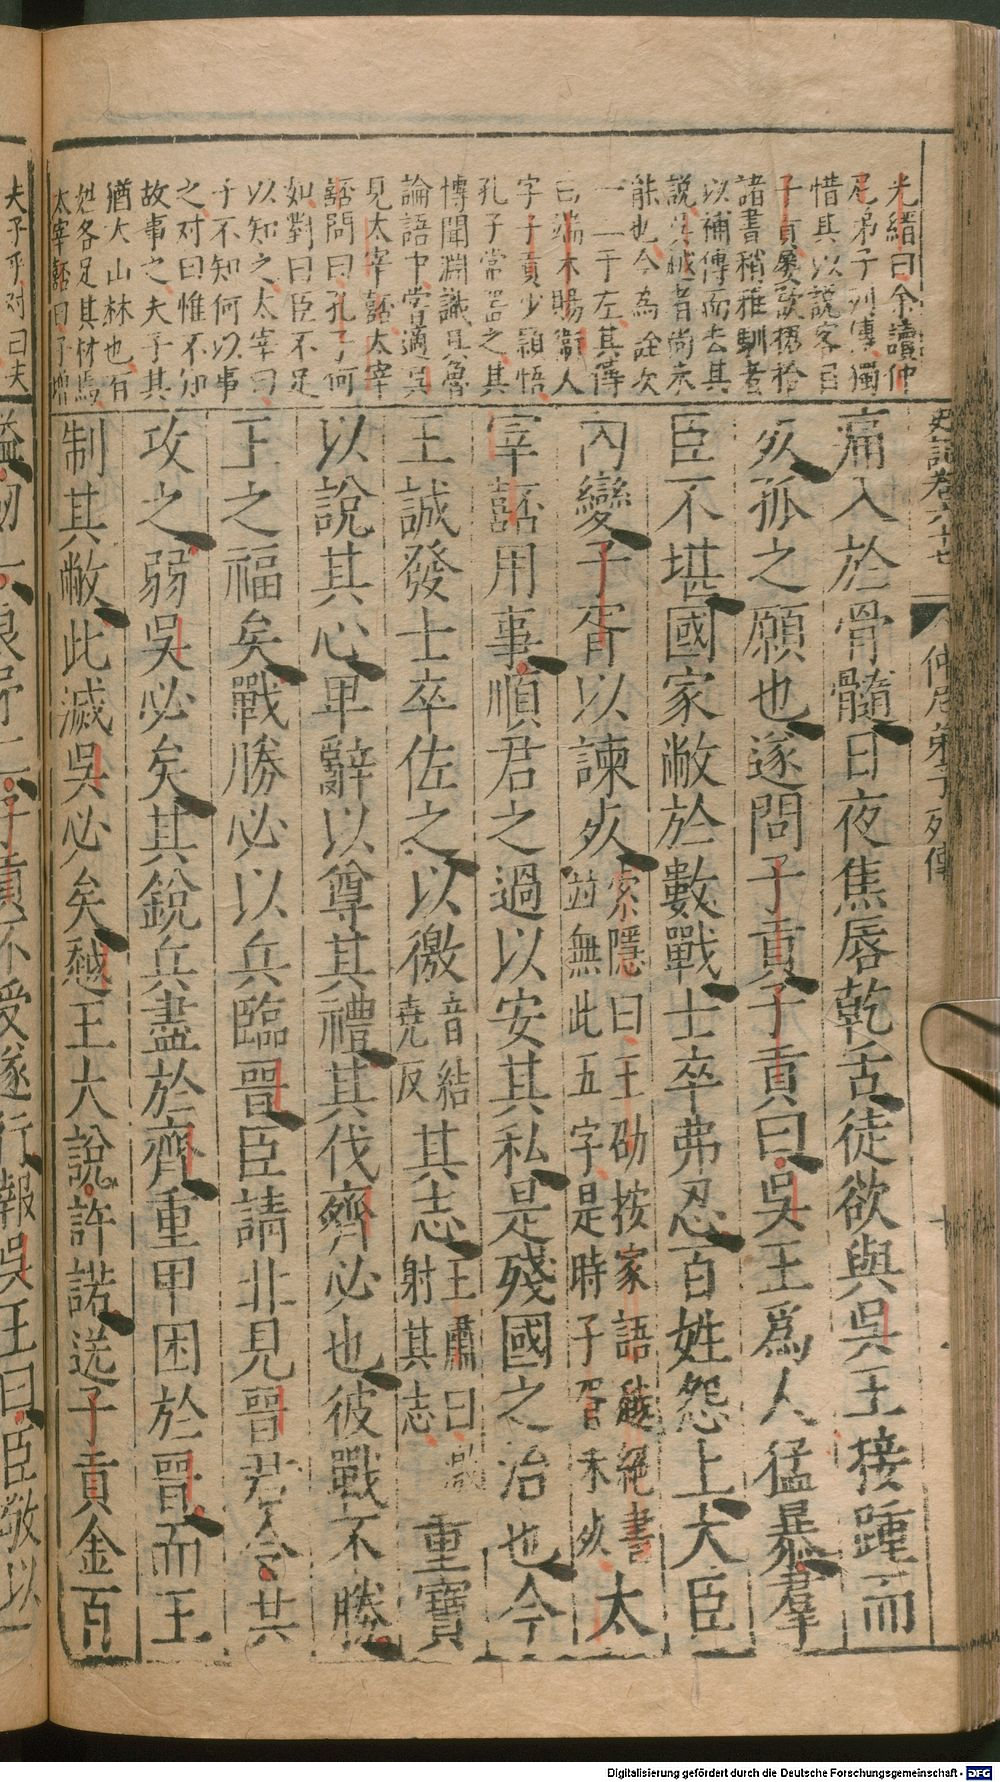 史記卷六十七
仲尼弟子列傳
光縉曰余讀仲
尼弟子列傳獨
惜其以說客目
子貢屢欲摭拾
諸書稍雅馴者
以補傳而去其
說吳越者尚未
能也今為詮次
一二于左其傳
曰端木賜衛人
字子貢少穎悟
孔子常器之其
博聞淵識具魯
論語中嘗適吳
見太宰嚭太宰
嚭問曰孔子何
如對曰臣不足
以知之太宰曰
子不知何以事
之对曰惟不知
故事之夫子其
猶大山林也百
姓各足其材焉
太宰嚭曰子增
痛入於骨髓日夜焦唇乾舌徒欲與吳王接踵而
死孤之願也遂問子貢子貢曰吳王爲人猛暴羣
臣不堪國家敝於數戰士卒弗忍百姓怨上大臣
內變子胥以諫死索隱曰王劭按家語越絕書
並無此五字是時子胥未死太
宰嚭用事順君之過以安其私是殘國之治也今
王誠發士卒佐之以徼音結
堯反其志王肅曰激
射其志重寶
以說其心卑辭以尊其禮其伐齊必也彼戰不勝
王之福矣戰勝必以兵臨晉臣請北見晉君令共
攻之弱吳必矣其銳兵盡於齊重甲困於晉而王
制其敝此滅吳必矣越王大說許諾送子貢金百
夫子乎对曰夫
鎰劍一良矛二子貢不受遂行報吳王曰臣敬以
Digitalisierung gefördert durch die Deutsche Forschungsgemeinschaft - DFG